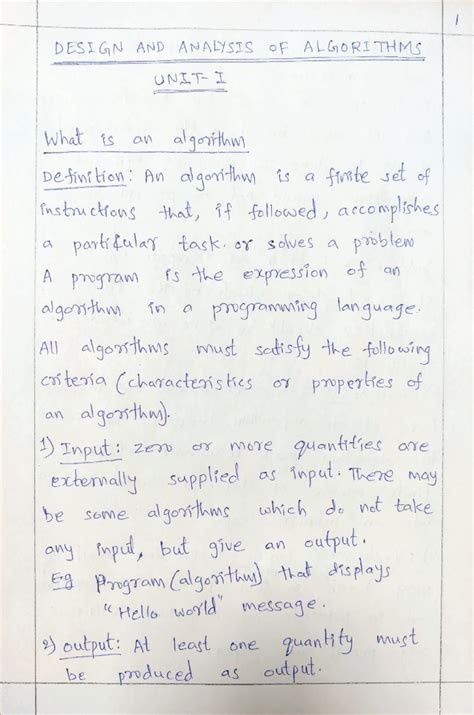 1
DESIGN AND ANALYSIS OF ALGORITHMS
UNIT-I
What is an algorithm
Definition: An algorithm is a finite set of
instructions that, if followed, accomplishes
a particular task. or solves a problem
A program is the expression of an
algorithm in a programming language.
All algorithms must satisfy the following
criteria (characteristics or properties of
an algorithm).
1) Input: zero or more quantities are
externally supplied as input. There may
be some algorithms which do not take
any input, but give an output.
Eg Program (algorithm) that displays
"Hello world" message.
2) output: At least one quantity must
be produced as output.